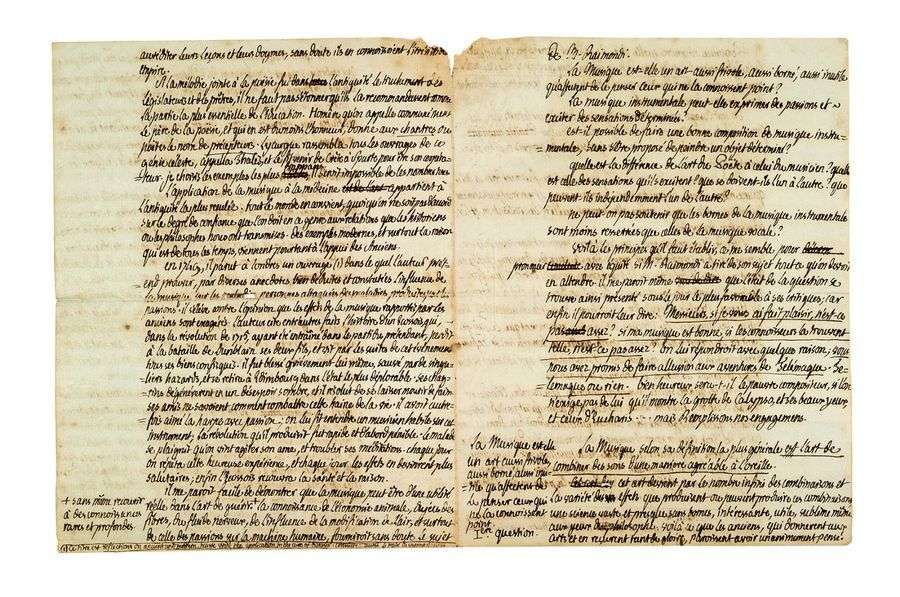 leurs leçons et leurs dogmes, sans doute ils en connoissoient
empire.
Si la mélodie, jointe à la poésie fut dans l'antiquité le truchement des
législateurs et des prêtres, il ne faut pas s'étonner qu'ils la recommandassent comme
la partie la plus essentielle de l'éducation. Homère qu'on appelle
le père de la poésie, et qui en est du moins l'honneur, donne aux chantres ou
poëtes le nom de précepteurs. Lycurgue rassembla tous les ouvrages de ce
génie céleste, appella Thalès, et le fit venir de Crète à Sparte pour être son
teur. je choisis les exemples les plus il seroit impossible de les nombrer tous
L'application de la musique à la médecine appartient à
l'antiquité la plus reculée. tout le monde en convient, quoiqu'on ne soit pas d'accord
sur le degré de confiance que l'on doit en ce genre aux relations que les historiens
ou les philosophes nous ont transmises. des exemples modernes, et surtout la raison
qui est de tous les temps, viennent pourtant à l'appui des Anciens.
en il parut à Londres un ouvrage (1) dans lequel l'auteur
end prouver, par diverses anecdotes bien déduites et constatées l'influence de
la musique sur les personnes attaquées de maladies, produites par les
passions. il s'élève contre l'opinion que les effets de la musique rapportés par les
anciens sont exagérés. l'auteur cite entr'autres faits l'histoire d'un écossois qui,
dans la révolution de 1715, ayant été entraîné dans le parti du prétendant, perdit
à la bataille de Dunblain ses deux fils, et est par les suites de cet événement
tous ses biens confisqués. il fut blessé grièvement lui même, sauvé par de singu-
liers hazards, et se retira à Edimbourg dans l'état le plus déplorable. ses cha-
grins dégénérèrent en un désespoir sombre, et il résolut de se laisser mourir de faim.
ses amis ne savoient comment combattre cette haine de la vie. il avoit autre-
fois aimé la harpe avec passion. on lui fit entendre un musicien habile sur cet
instrument. la révolution qu'il produisit fut rapide et d'abord pénible. le malade
se plaignit qu'on vint agiter son ame, et troubler ses méditations. chaque jour
on répéta cette heureuse expérience, et chaque jour les effets en devinrent plus
salutaires; enfin l'écossois recouvra la santé et la raison.
il me paroit facile de démontrer que la musique peut être d'une utilité
réelle dans l'art de guérir. la connoissance de l'économie animale, du jeu des
fibres, du fluide nerveux, de l'influence de la modification de l'air, et surtout
de celle des passions sur la machine humaine, fourniroit sans doute le sujet
+ sans même recourir
à des connoissances
rares et profondes.
de M. Raimondi.
La Musique est-elle un art aussi frivole, aussi borné, aussi inutile
qu'affectent de le penser ceux qui ne la connoissent point?
La musique instrumentale peut-elle exprimer des passions et
exciter des sensations déterminées?
est-il possible de faire une bonne composition de musique instru-
mentale, sans s'être proposé de peindre un objet déterminé?
quelle est la différence de l'art du Poëte à celui du musicien? quelle
est celle des sensations qu'ils excitent? que se doivent-ils l'un à l'autre? que
peuvent-ils indépendemment l'un de l'autre?
ne peut-on pas soutenir que les bornes de la musique instrumentale
sont moins resserrées que celles de la musique vocale?
Voilà les principes qu'il faut établir, ce me semble, pour
prononcer avec équité si M. Raimondi a tiré de son sujet tout ce qu'on devoit
en attendre. il ne paroit même que l'état de la question se
trouve ainsi présenté sous le jour le plus favorable à ses critiques; car
enfin il pourroit leur dire: Messieurs, si je vous ai fait plaisir, n'est-ce
pas assez? si ma musique est bonne, si les connoisseurs la trouvent
telle, n'est-ce pas assez? on lui répondroit avec quelque raison; vous
nous avez promis de faire allusion aux aventures de Télémaque. Té-
lémaque ou rien. bien heureux sera-t-il le pauvre compositeur, si l'on
n'exige pas de lui qu'il montre la grotte de Calypso, et les beaux yeux
et cœur d'Eucharis.... mais remplissons nos engagemens.
La Musique est-elle
un art aussi frivole,
aussi borné, aussi inu-
tile qu'affectent de
le penser ceux qui
ne la connoissent
point
1ère question.
La Musique, selon sa définition la plus générale est l'art de
combiner des sons d'une manière agréable à l'oreille.
cet art devient par le nombre infini des combinaisons et
la variété des effets que produisent ou peuvent produire ces combinaisons
une science vaste et presque sans bornes, intéressante, utile, sublime même
aux yeux du philosophe. voilà ce que les anciens, qui honnorèrent cet
art et en reçurent tant de gloire, paroissent avoir unanimement pensé.